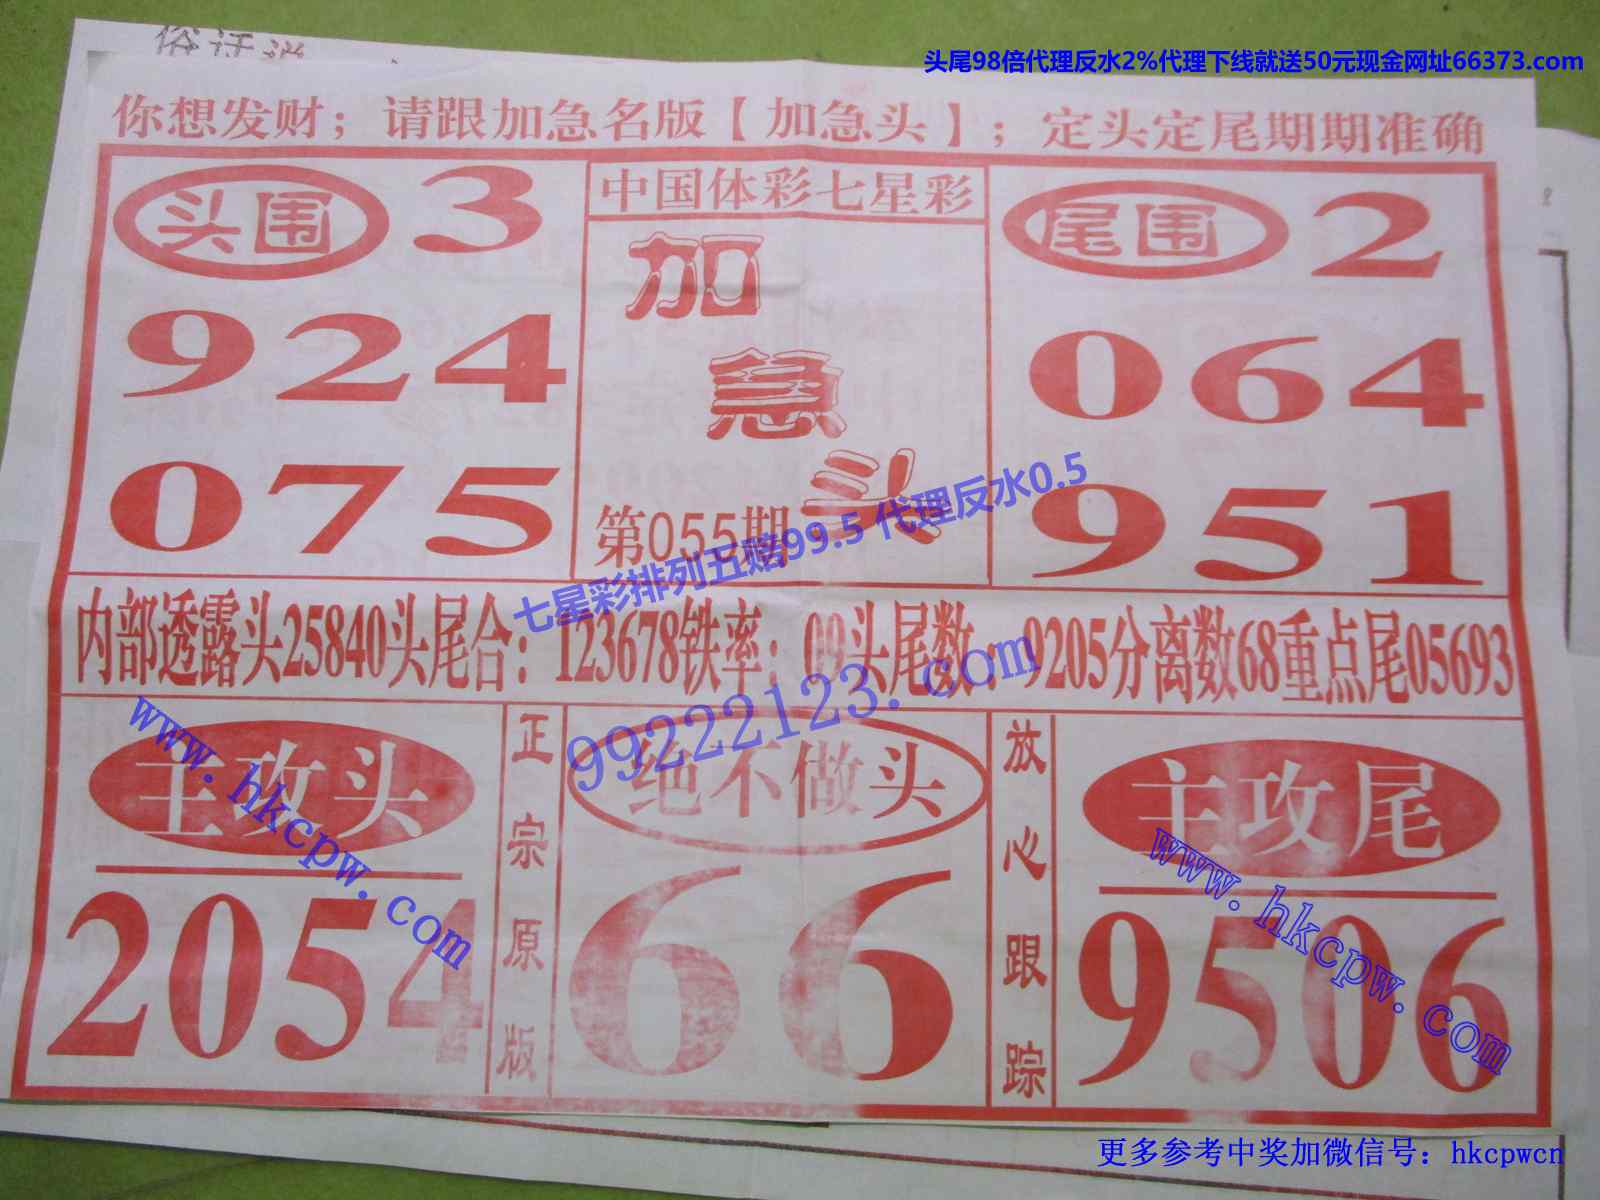 俗话说
头尾98倍代理反水2%代理下线就送50元现金网址66373.com
你想发财；请跟加急名版【加急头】；定头定尾期期准确
头围 3
924
075
中国体彩七星彩
加
急
头
第055期
尾围 2
064
951
七星彩排列五赔99.5 代理反水0.5
内部透露头25840头尾合：123678铁率：09头尾数：9205分离数68重点尾05693
99222123.com
主攻头
2054
www.hkcpw.com
正宗原版
绝不做头
66
放心跟踪
主攻尾
9506
www.hkcpw.com
更多参考中奖加微信号：hkcpwcn